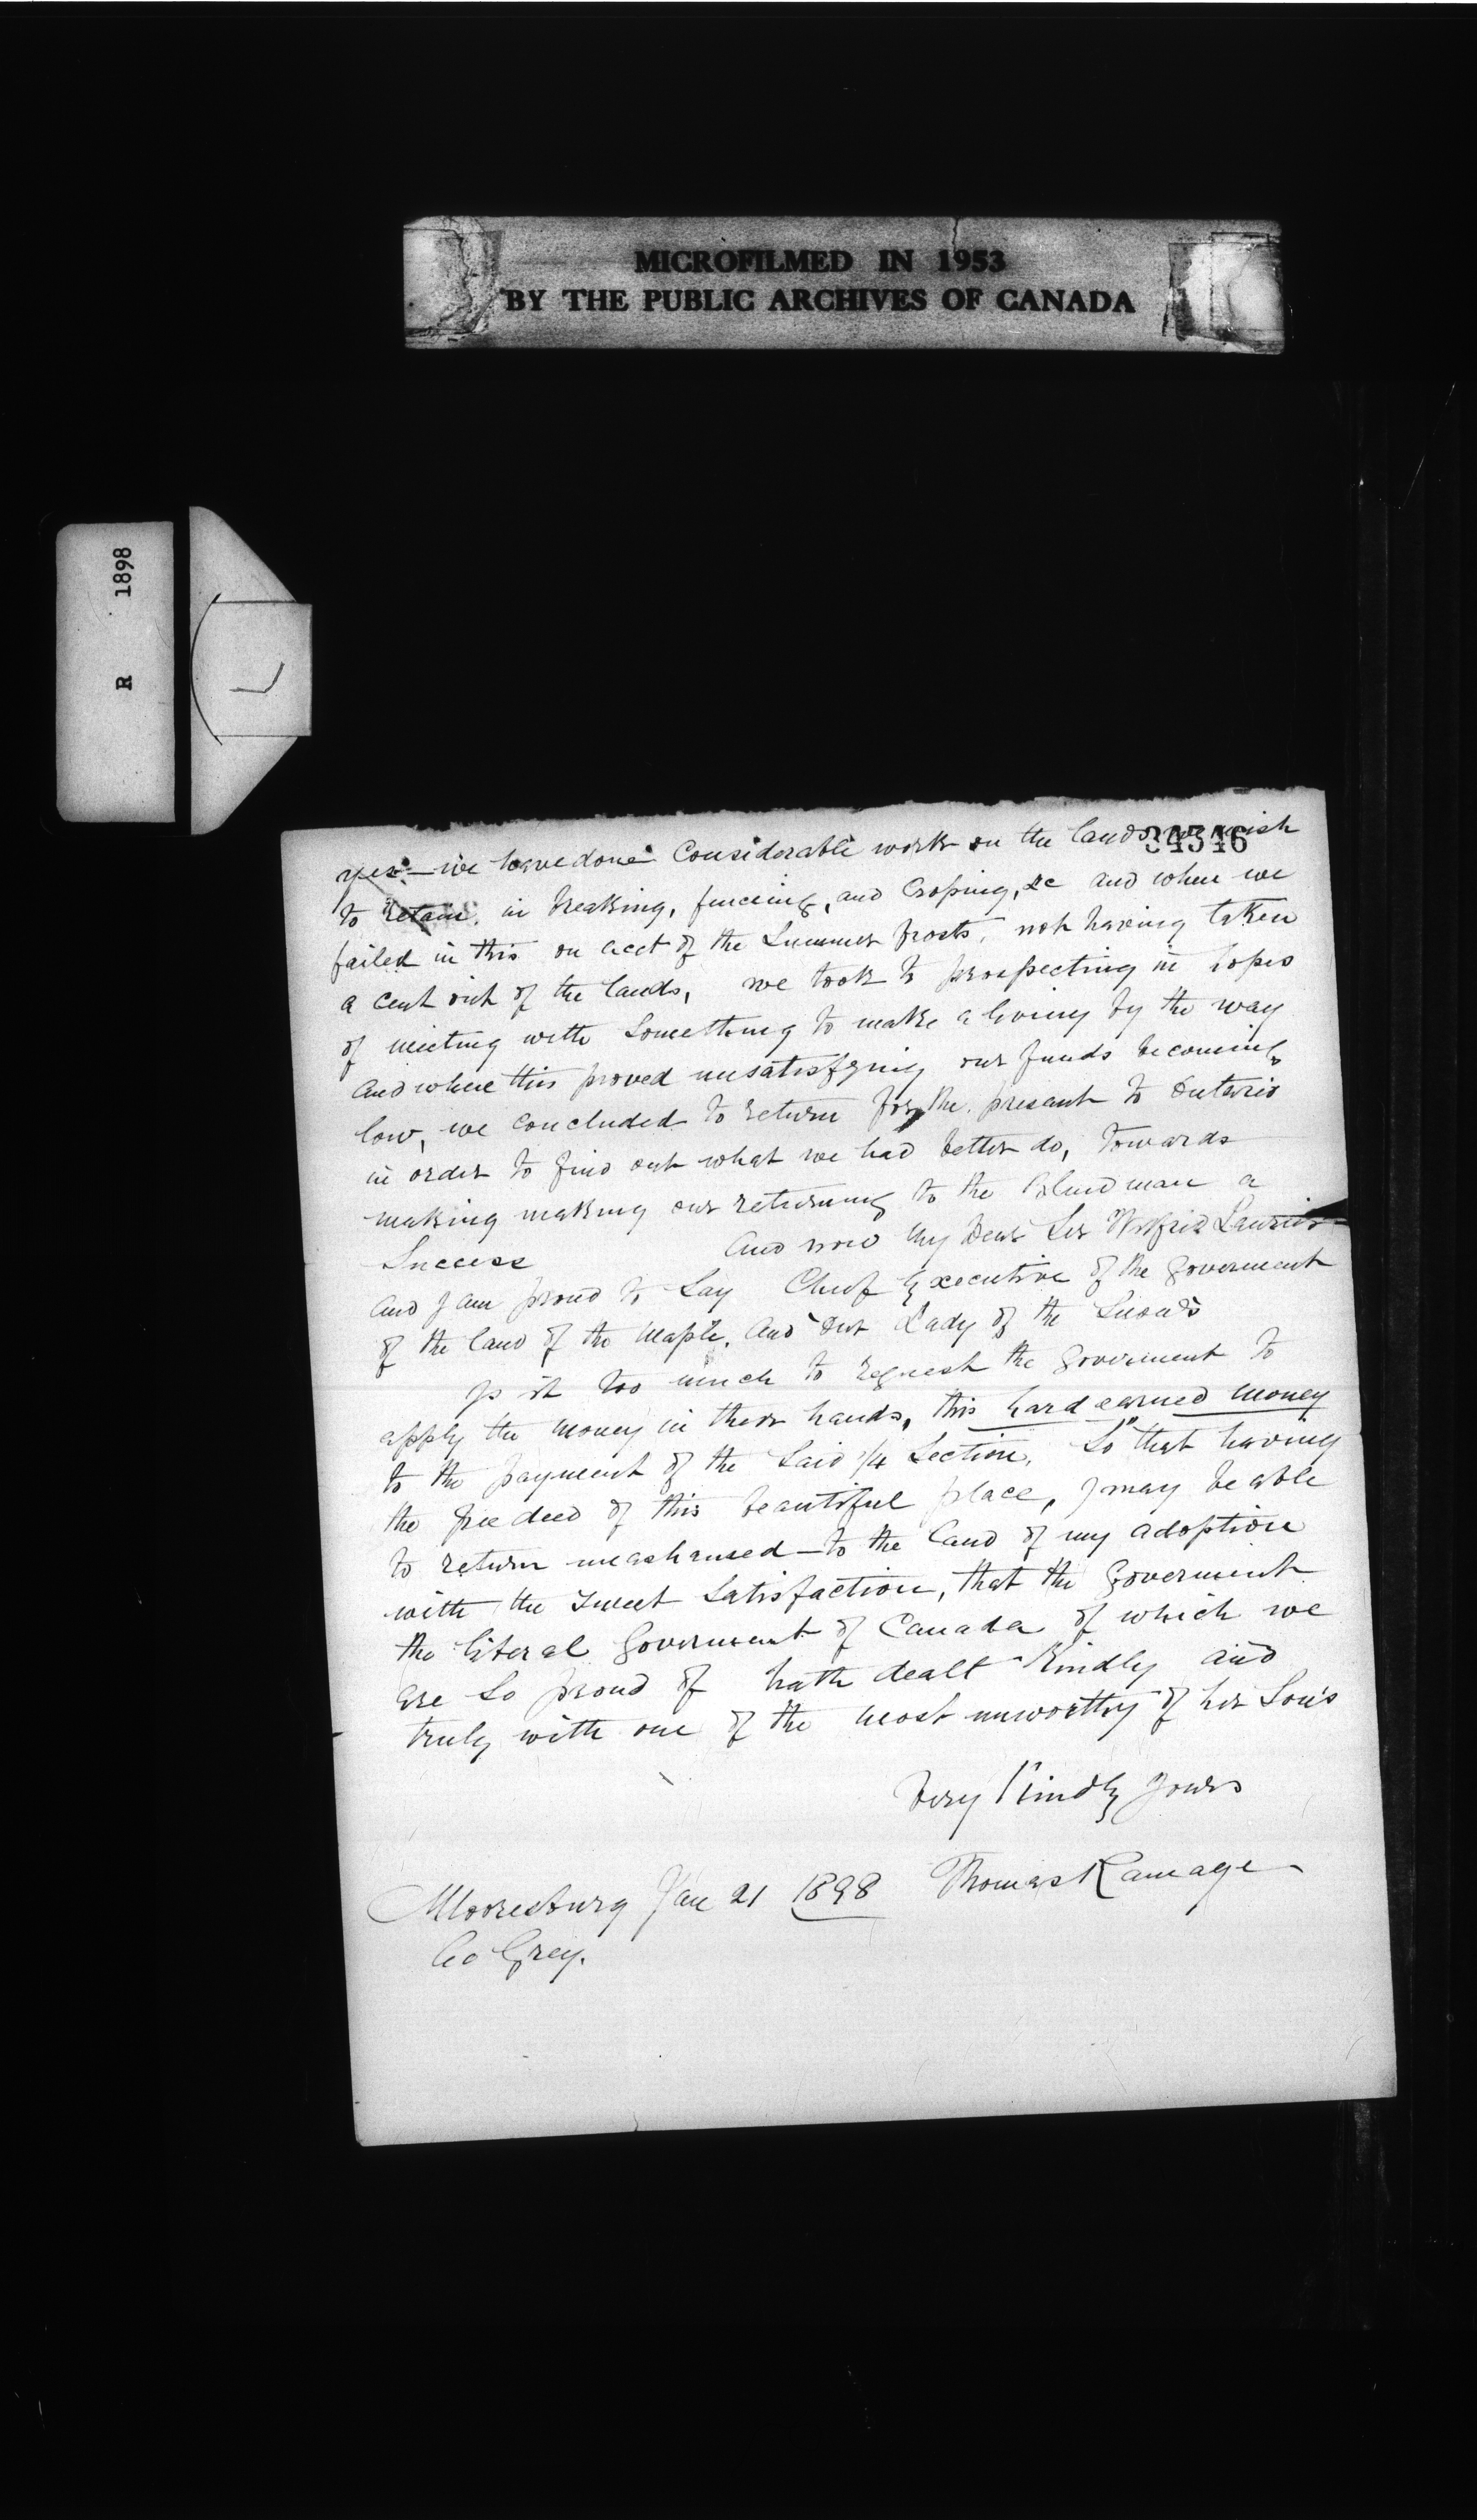 MICROFILMED IN 1953
BY THE PUBLIC ARCHIVES OF CANADA
R 1898
34546
yes — we have done Considerable work on the lands we wish
to retain. in breaking, fenceing, and Croping, &c and when we
failed in this on acct of the Summer frosts, not having taken
a cent out of the lands, we took to prospecting in hopes
of meeting with Something to make a living by the way
and where this proved unsatisfying our funds becoming
low, we concluded to return for the present to Ontario
in order to find out what we had better do, towards
making making our returning to the a
Success And now my Dear Sir Wilfrid Laurier
and I am proud to Say Chief Executive of the Goverment
of the land of the Maple. And Our Lady of the Snows
Is it too much to request the Goverment to
apply the money in their hands, this hard earned money
to the payment of the Said 1/4 Section. So that having
the free deed of this beautiful place, I may be able
to return unashamed — to the land of my adoption
with the Sweet Satisfaction, that the Goverment
the liberal Goverment of Canada of which we
are So proud of hath dealt Kindly and
truly with one of the most unworthy of her Son's
Very Kindly Yours
Thomas Ramage
Mooresburg Jan 21 1898
Co Grey.